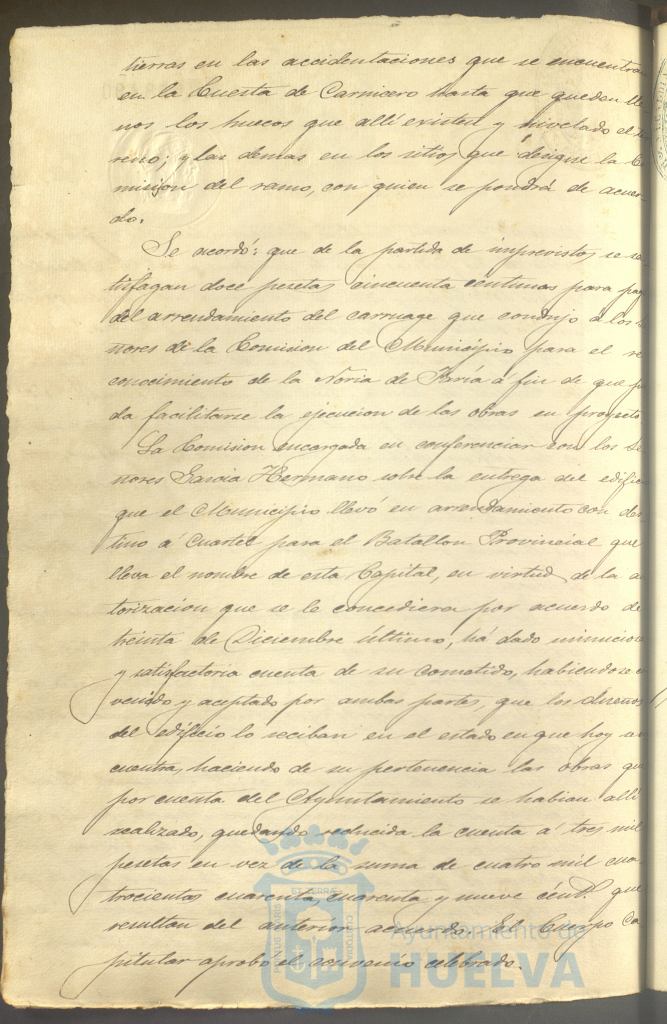 tierras en las accidentaciones que se encuentra
en la Cuesta de Carnicero hasta que queden lle
nos los huecos que allí existen y nivelado el te
rreno; y las demas en los sitios que designe la Co
mision del ramo, con quien se pondrá de acuer
do.
Se acordó: que de la partida de imprevistos se sa
tisfagan doce pesetas cincuenta céntimos para pag
del arrendamiento del carruage que condujo a los Se
ñores de la Comision del Municipio para el re
conocimiento de la Noria de á fin de que pue
da facilitarse la ejecucion de las obras en proyecto
La Comision encargada en conferenciar con los Se
ñores Garcia Hermano sobre la entrega del edifici
que el Municipio llevó en arrendamiento con des
tino a Cuartel para el Batallon Provincial que
lleva el nombre de esta Capital, en virtud de la au
torizacion que se le concediera por acuerdo de
treinta de Diciembre último, há dado minuciosa
y satisfactoria cuenta de su cometido, habiendose con
venido y aceptado por ambas partes, que los dueños
del edificio lo reciban en el estado en que hoy se en
cuentra, haciendo de su pertenencia las obras que
por cuenta del Ayuntamiento se habian alli
realizado, quedando reducida la cuenta á tres mil
pesetas en vez de la suma de cuatro mil cua
trocientas cuarenta cuarenta y nueve cénts. que
resultan del anterior acuerdo. El Cuerpo Ca
pitular aprobó el convenio celebrado.
Ayuntamiento de
HUELVA